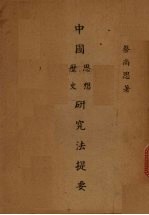 蔡尚思著
中國思想歷史研究法提要